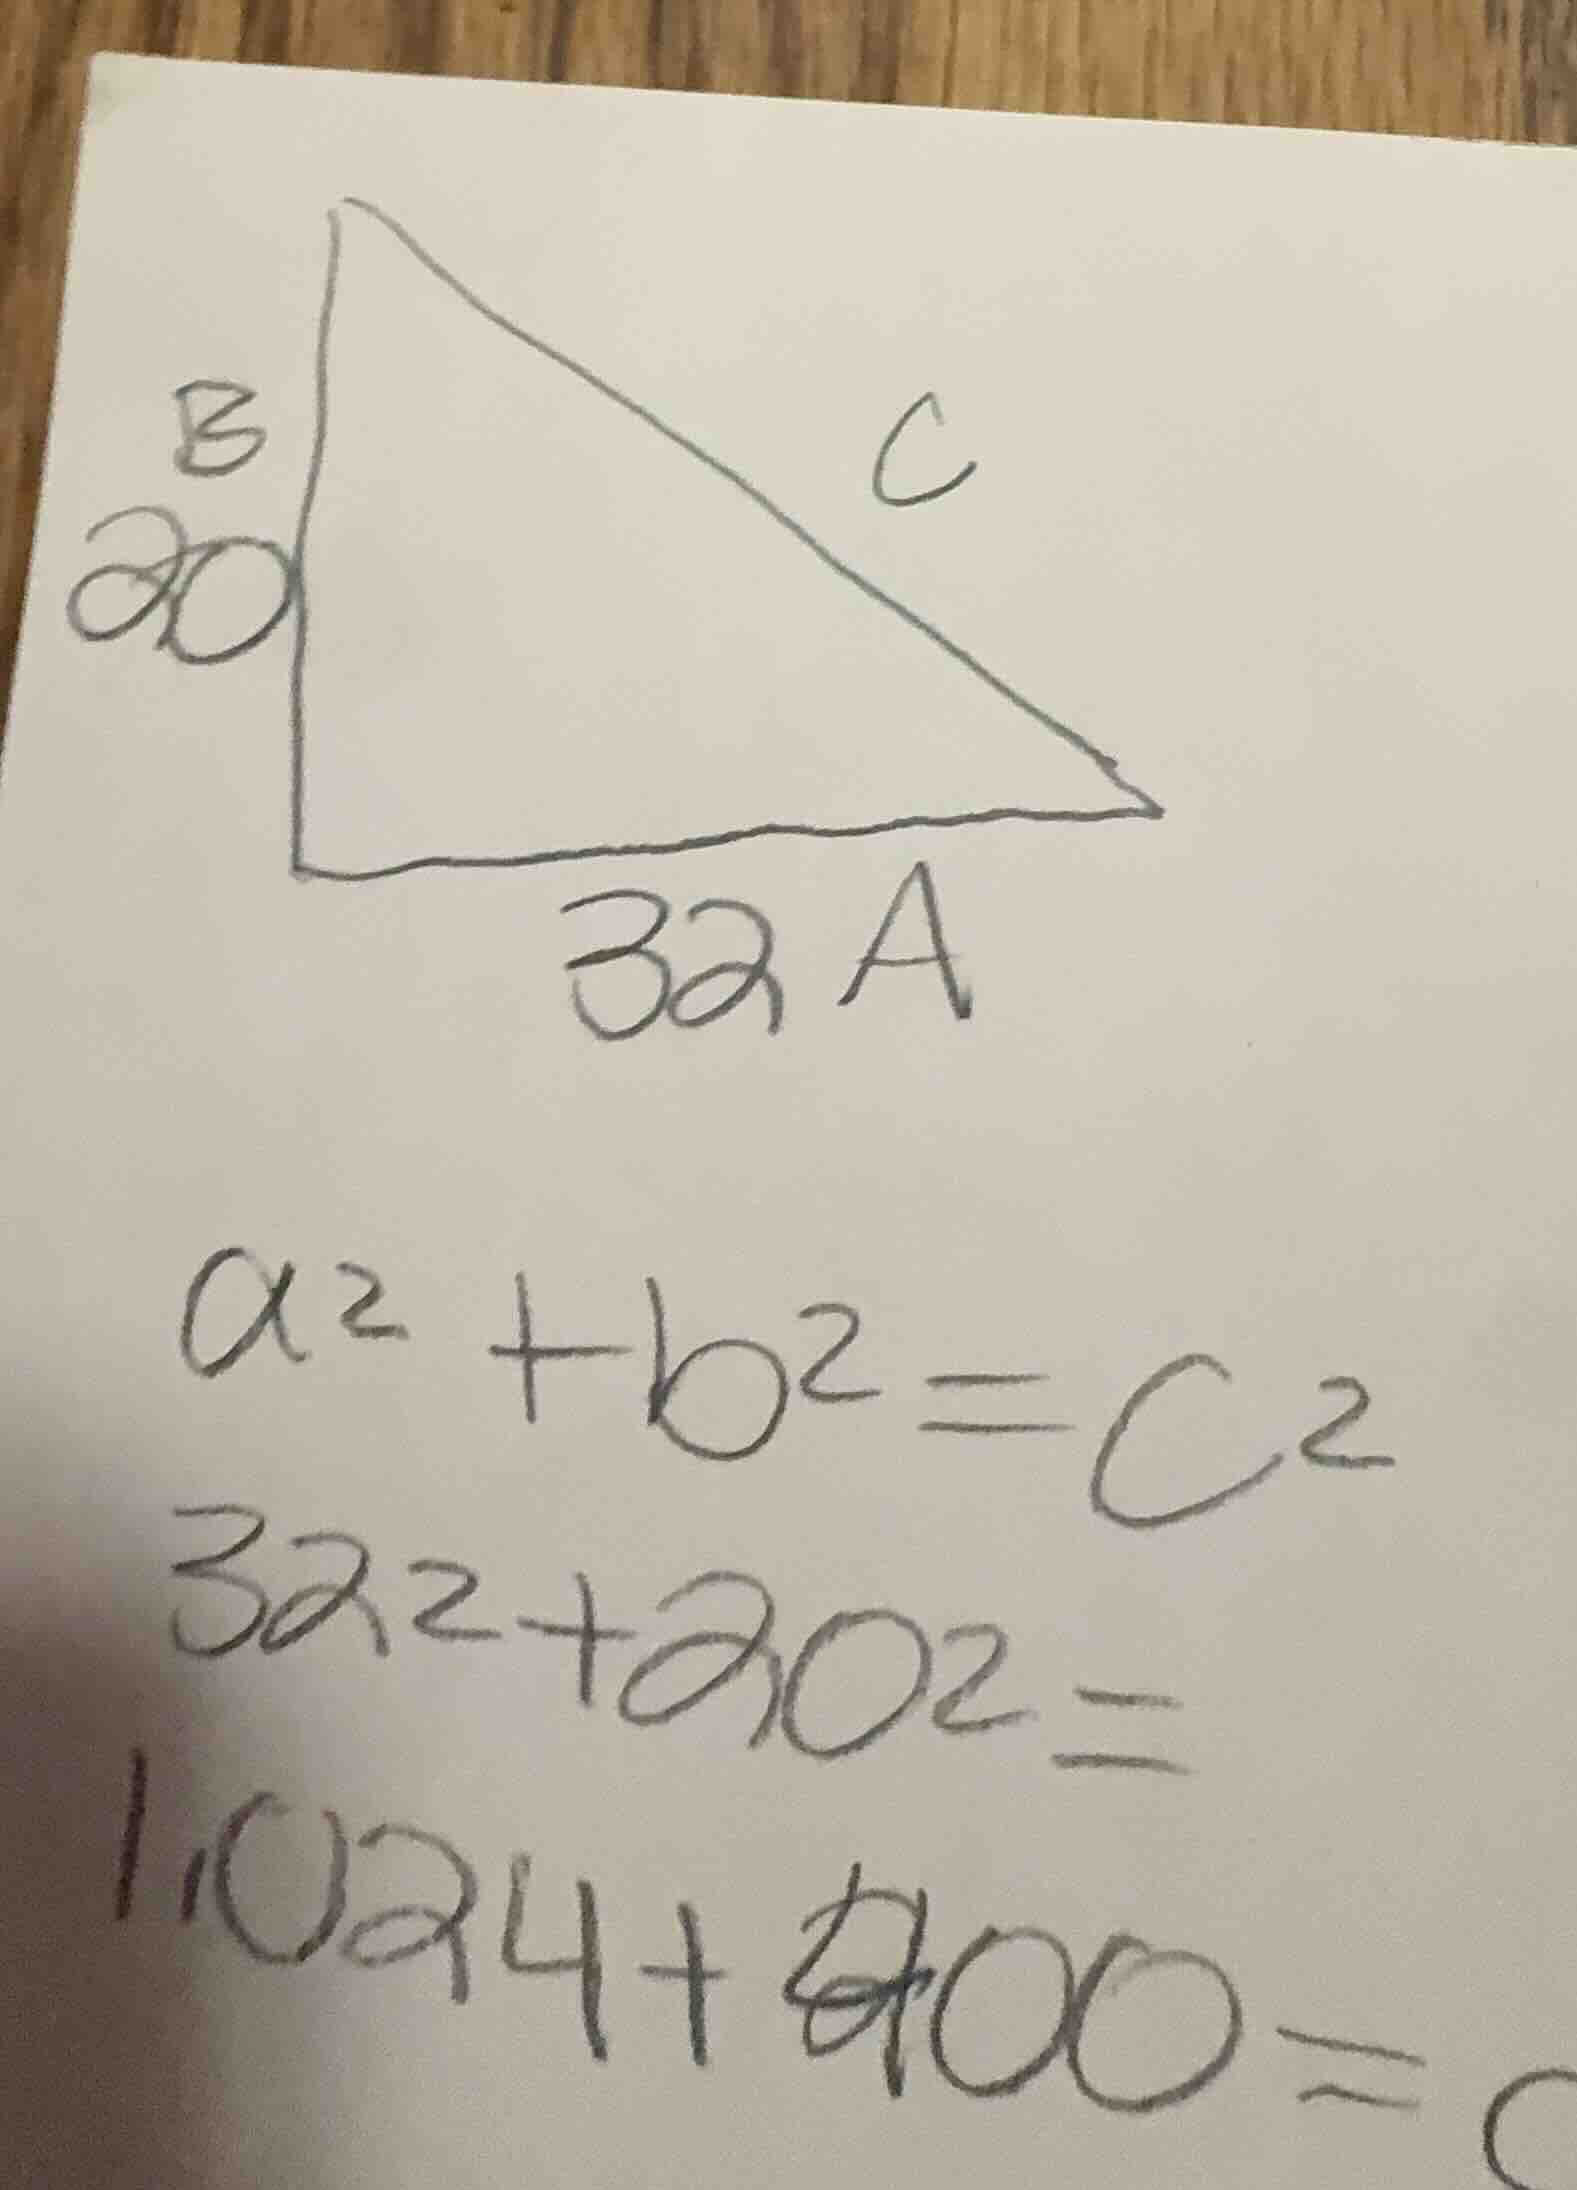 B
C
20
32 A
a² + b² = c²
32² + 20² =
1,024 + 400 = c